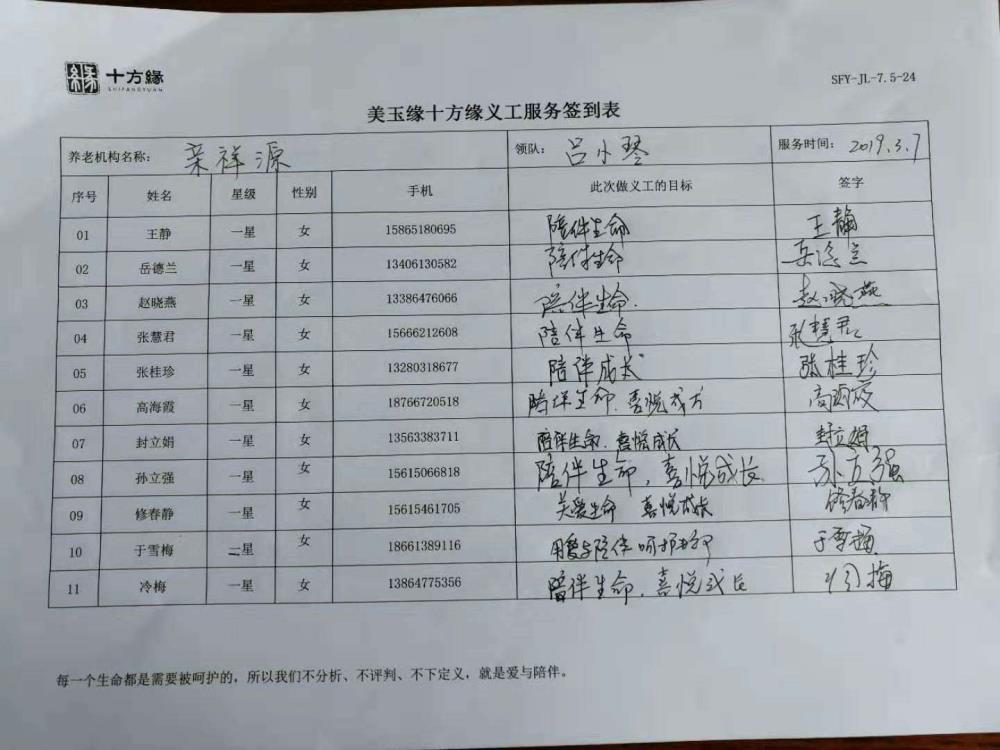 緣 十方緣
SHIFANGYUAN
SFY-JL-7.5-24
美玉缘十方缘义工服务签到表
养老机构名称: 亲祥源 领队: 吕小琴 服务时间: 2019.3.7
序号 姓名 星级 性别 手机 此次做义工的目标 签字
01 王静 一星 女 15865180695 陪伴生命 王静
02 岳德兰 一星 女 13406130582 陪伴生命 岳德兰
03 赵晓燕 一星 女 13386476066 陪伴生命. 赵晓燕
04 张慧君 一星 女 15666212608 陪伴生命 张慧君
05 张桂珍 一星 女 13280318677 陪伴成长 张桂珍
06 高海霞 一星 女 18766720518 陪伴生命.喜悦成长 高海霞
07 封立娟 一星 女 13563383711 陪伴生命.喜悦成长 封立娟
08 孙立强 一星 女 15615066818 陪伴生命,喜悦成长. 孙立强
09 修春静 一星 女 15615461705 关爱生命 喜悦成长 修春静
10 于雪梅 二星 女 18661389116 用爱与陪伴呵护 于雪梅
11 冷梅 一星 女 13864775356 陪伴生命.喜悦成长 冷梅
每一个生命都是需要被呵护的，所以我们不分析、不评判、不下定义，就是爱与陪伴。